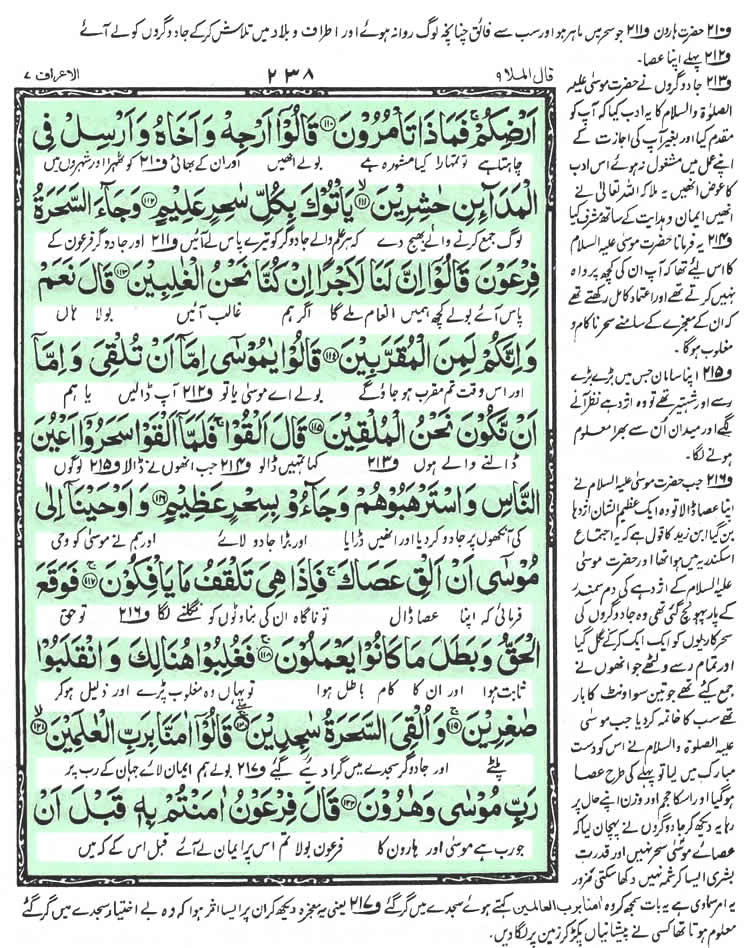 و۲۱۰ حضرت ہارون و۲۱۱ جو سحر میں ماہر ہو اور سب سے فائق چنانچہ لوگ روانہ ہوئے اور اطراف و بلاد میں تلاش کرکے جادوگروں کو لے آئے
و۲۱۲ پہلے اپنا عصا۔
قال الملا ۹
۲۳۸
الاعراف ۷
اَرْضِكُمْ ۚ فَمَاذَا تَاْمُرُوْنَ ﴿۱۱۰﴾ قَالُوْۤا اَرْجِهْ وَ اَخَاهُ وَ اَرْسِلْ فِی
چاہتا ہے تو تمہارا کیا مشورہ ہے بولے انھیں اور ان کے بھائی و۲۱۰ کو ٹھہرا اور شہروں میں
الْمَدَآىِٕنِ حٰشِرِیْنَ ﴿۱۱۱﴾ یَاْتُوْكَ بِكُلِّ سٰحِرٍ عَلِیْمٍ ﴿۱۱۲﴾ وَ جَآءَ السَّحَرَةُ
لوگ جمع کرنے والے بھیج دے کہ ہر علم والے جادوگر کو تیرے پاس لے آئیں و۲۱۱ اور جادوگر فرعون کے
فِرْعَوْنَ قَالُوْۤا اِنَّ لَنَا لَاَجْرًا اِنْ كُنَّا نَحْنُ الْغٰلِبِیْنَ ﴿۱۱۳﴾ قَالَ نَعَمْ
پاس آئے بولے کچھ ہمیں انعام ملے گا اگر ہم غالب آئیں بولا ہاں
وَ اِنَّكُمْ لَمِنَ الْمُقَرَّبِیْنَ ﴿۱۱۴﴾ قَالُوْا یٰمُوْسٰۤى اِمَّاۤ اَنْ تُلْقِیَ وَ اِمَّاۤ
اور اس وقت تم مقرب ہو جاؤ گے بولے اے موسیٰ یا تو و۲۱۲ آپ ڈالیں یا ہم
اَنْ نَّكُوْنَ نَحْنُ الْمُلْقِیْنَ ﴿۱۱۵﴾ قَالَ اَلْقُوْا ۚ فَلَمَّاۤ اَلْقَوْا سَحَرُوْۤا اَعْیُنَ
ڈالنے والے ہوں و۲۱۳ کہا تمہیں ڈالو و۲۱۴ جب انھوں نے ڈالا و۲۱۵ لوگوں
النَّاسِ وَ اسْتَرْهَبُوْهُمْ وَ جَآءُوْ بِسِحْرٍ عَظِیْمٍ ﴿۱۱۶﴾ وَ اَوْحَیْنَاۤ اِلٰى
کی آنکھوں پر جادو کر دیا اور انھیں ڈرایا اور بڑا جادو لائے اور ہم نے موسیٰ کو وحی
مُوْسٰۤى اَنْ اَلْقِ عَصَاكَ ۚ فَاِذَا هِیَ تَلْقَفُ مَا یَاْفِكُوْنَ ﴿۱۱۷﴾ فَوَقَعَ
فرمائی کہ اپنا عصا ڈال تو ناگاہ ان کی بناوٹوں کو نگلنے لگا و۲۱۶ تو حق
الْحَقُّ وَ بَطَلَ مَا كَانُوْا یَعْمَلُوْنَ ﴿۱۱۸﴾ فَغُلِبُوْا هُنَالِكَ وَ انْقَلَبُوْا
ثابت ہوا اور ان کا کام باطل ہوا تو یہاں وہ مغلوب پڑے اور ذلیل ہو کر
صٰغِرِیْنَ ﴿۱۱۹﴾ وَ اُلْقِیَ السَّحَرَةُ سٰجِدِیْنَ ﴿۱۲۰﴾ قَالُوْۤا اٰمَنَّا بِرَبِّ الْعٰلَمِیْنَ ﴿۱۲۱﴾
پلٹے اور جادوگر سجدے میں گرا دیے گئے و۲۱۷ بولے ہم ایمان لائے جہان کے رب پر
رَبِّ مُوْسٰى وَ هٰرُوْنَ ﴿۱۲۲﴾ قَالَ فِرْعَوْنُ اٰمَنْتُمْ بِهٖ قَبْلَ اَنْ
جو رب ہے موسیٰ اور ہارون کا فرعون بولا تم اس پر ایمان لے آئے قبل اس کے کہ میں
و۲۱۳ جادوگروں نے حضرت موسیٰ علیہ
الصلوٰۃ والسلام کا یہ ادب کیا کہ آپ کو
مقدم کیا اور بغیر آپ کی اجازت کے
اپنے عمل میں مشغول نہ ہوئے اس ادب
کا عوض انھیں یہ ملا کہ اللہ تعالیٰ نے
انھیں ایمان و ہدایت کے ساتھ مشرف کیا
و۲۱۴ یہ فرمانا حضرت موسیٰ علیہ السلام
کا اس لئے تھا کہ آپ ان کی کچھ پرواہ
نہیں کرتے تھے اور اعتماد کامل رکھتے تھے
کہ ان کے معجزے کے سامنے سحر ناکام و
مغلوب ہوگا۔
و۲۱۵ اپنا سامان جس میں بڑے بڑے
رسے اور شہتیر تھے تو وہ اژدہے نظر آنے
لگے اور میدان ان سے بھرا معلوم
ہونے لگا۔
و۲۱۶ جب حضرت موسیٰ علیہ السلام نے
اپنا عصا ڈالا تو وہ ایک عظیم الشان اژدہا
بن گیا ابن زید کا قول ہے کہ یہ اجتماع
اسکندریہ میں ہوا تھا اور حضرت موسیٰ
علیہ السلام کے اژدہے کی دم سمندر
کے پار پہونچ گئی تھی وہ جادوگروں کی
سحرکاریوں کو ایک ایک کرکے نگل گیا
اور تمام رسے و لٹھے جو انھوں نے
جمع کئے تھے جو تین سو اونٹ کا بار
تھے سب کا خاتمہ کر دیا جب موسیٰ
علیہ الصلوٰۃ والسلام نے اس کو دست
مبارک میں لیا تو پہلے کی طرح عصا
ہوگیا اور اسکا حجم اور وزن اپنے حال پر
رہا یہ دیکھ کر جادوگروں نے پہچان لیا کہ
عصائے موسیٰ سحر نہیں اور قدرت
بشری ایسا کرشمہ نہیں دکھا سکتی ضرور
یہ امر سماوی ہے یہ بات سمجھ کر وہ اٰمنا برب العالمین کہتے ہوئے سجدے میں گر گئے و۲۱۷ یعنی یہ معجزہ دیکھ کر ان پر ایسا اثر ہوا کہ وہ بے اختیار سجدے میں گر گئے
معلوم ہوتا تھا کسی نے پیشانیاں پکڑ کر زمین پر لگا دیں۔